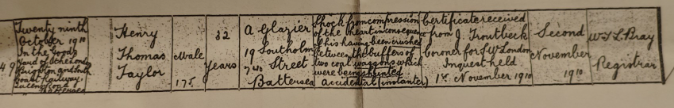 Twenty ninth
October 1911
In the Goods
Yard of the London
Brighton and South
Coast Railway
49
Battersea
Henry
Thomas
Taylor
Male
175
32
years
A Glazier
19 Southolm
Street
Battersea
Shock from compression
of the heart in consequence
of his having been crushed
between the buffers of
two coal waggons which
were being shunted
Accidental (instanter)
Certificate received
from J. Troutbeck
Coroner for SW London
Inquest held
1st November 1911
Second
November
1911
Registrar